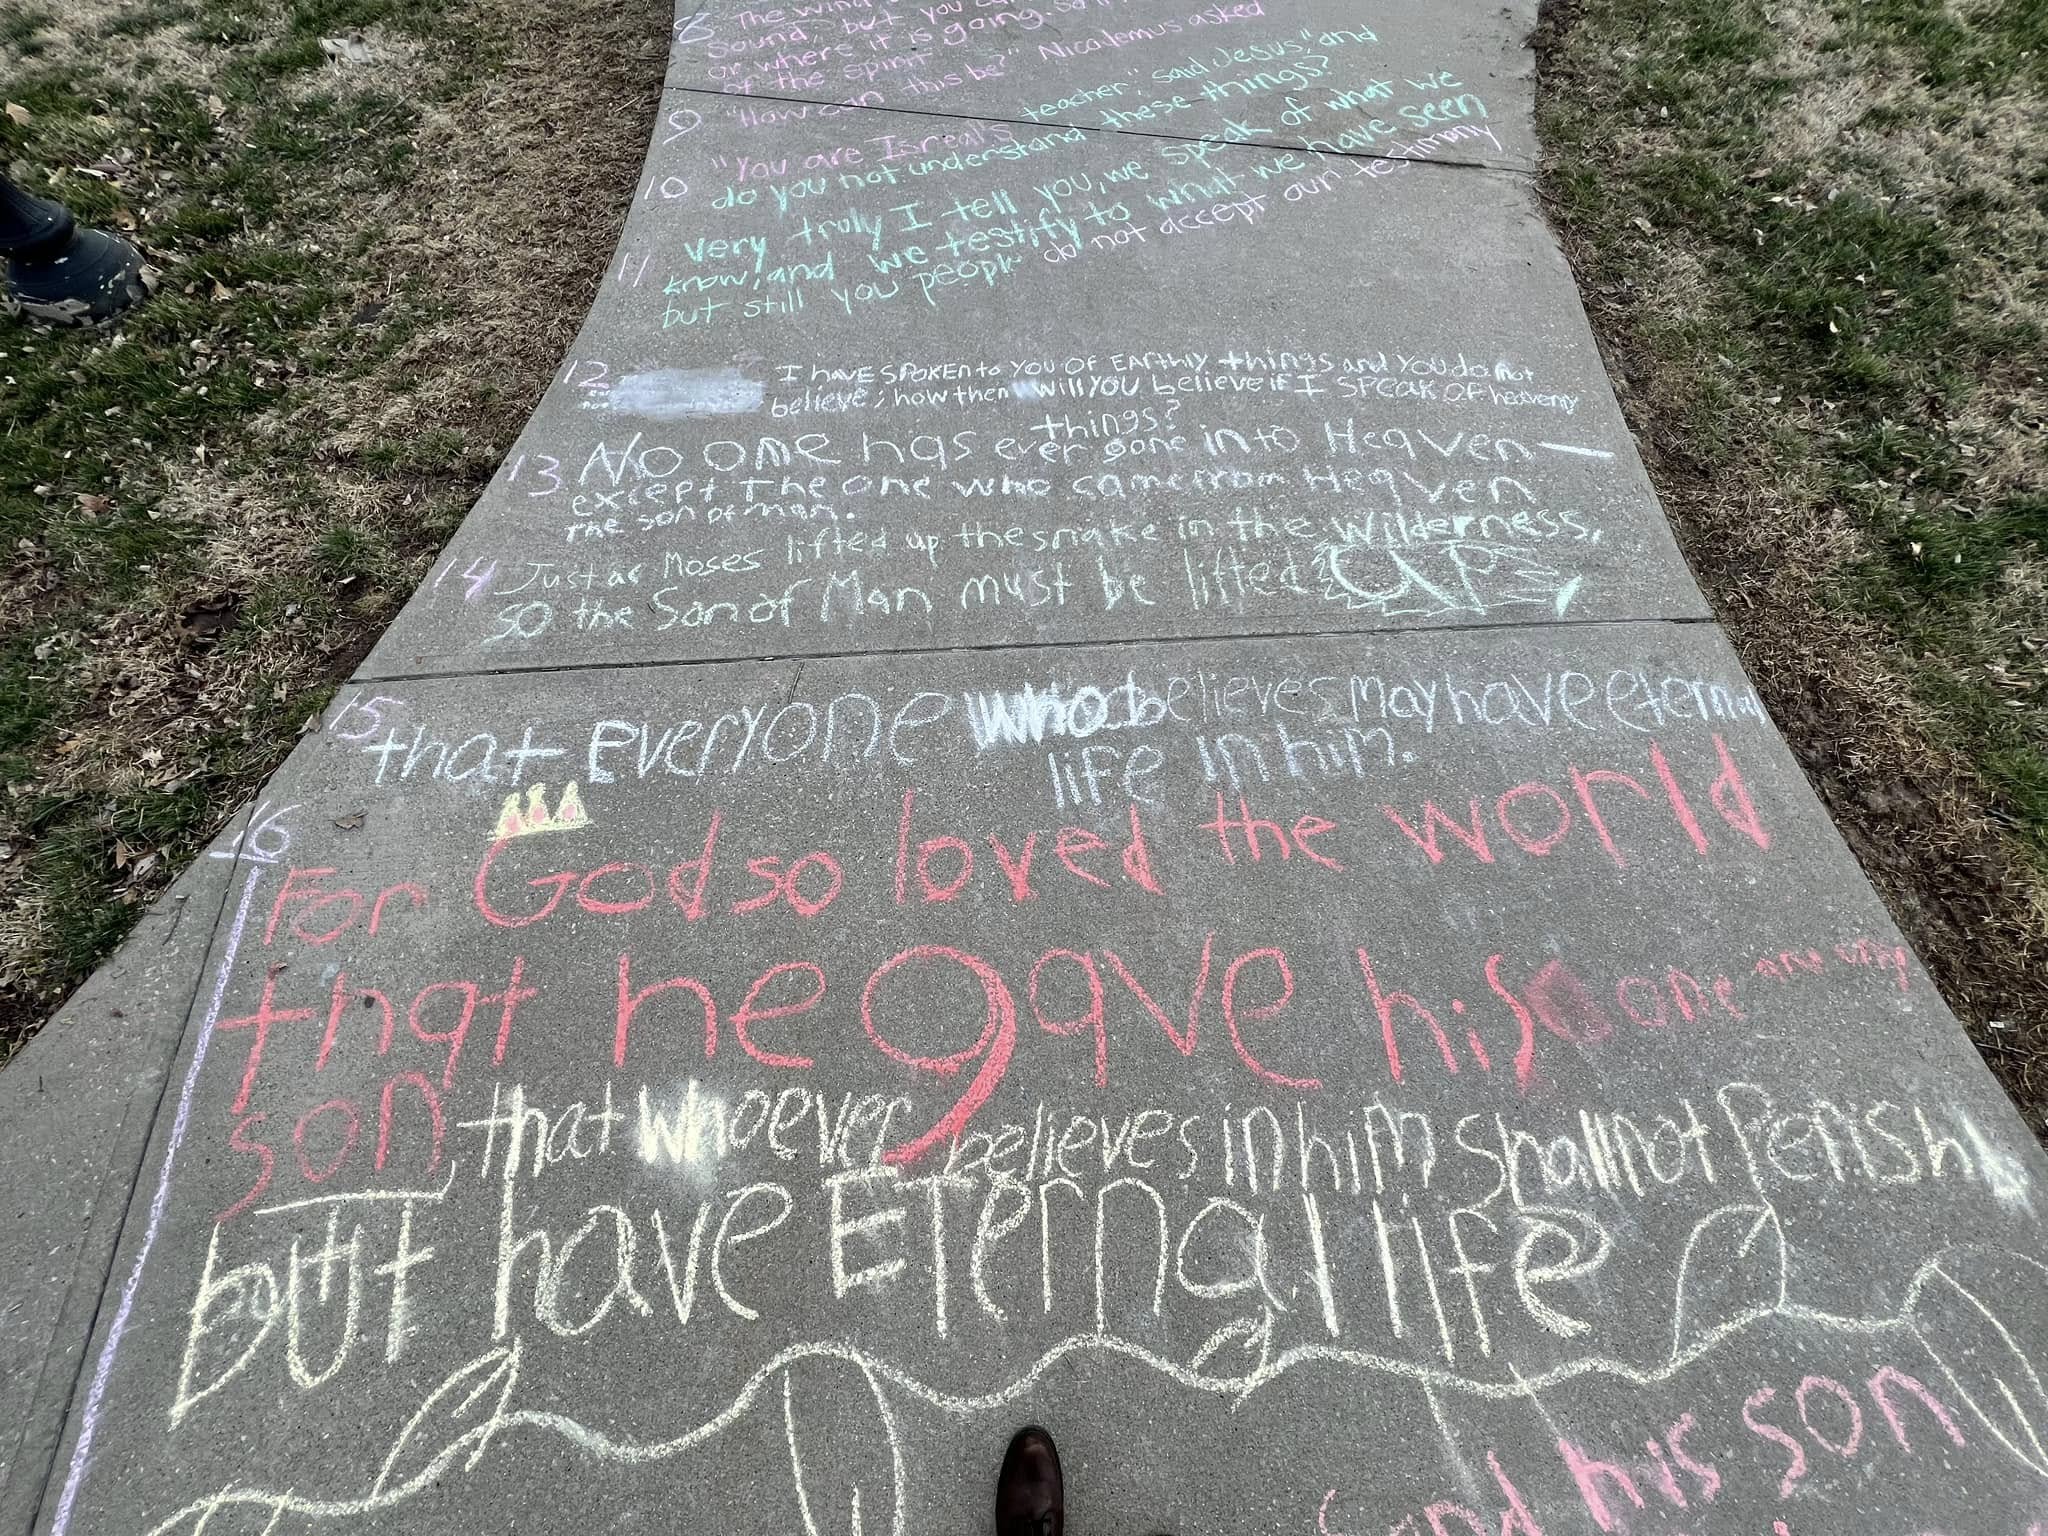 8 The wind
sound, but you
or where it is going. So it
of the spirit"
9 "How can this be?" Nicalemus asked
10 "You are Isreal's teacher," said Jesus, "and
do you not understand these things?
11 Very truly I tell you, we speak of what we
know, and we testify to what we have seen
but still you people do not accept our testimony
12 I have spoken to you of Earthly things and you do not
believe; how then will you believe if I speak of heavenly
things?
13 No one has ever gone into Heaven—
except the one who came from Heaven
the son of man.
14 Just as Moses lifted up the snake in the wilderness,
so the Son of Man must be lifted UP
15 that Everyone who believes may have eternal
life in him.
16 For God so loved the world
that he gave his one and only
son, that whoever believes in him shall not Perish
but have Eternal life
send his son